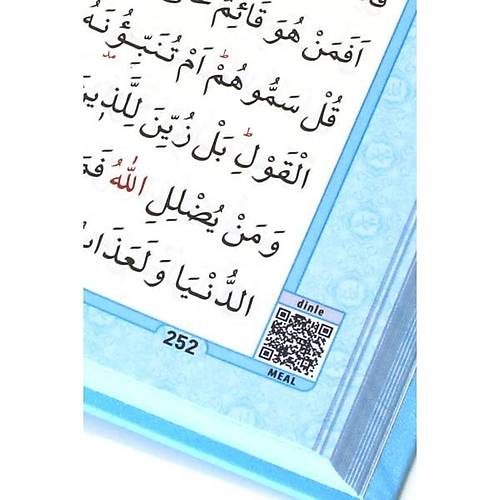 اَفَمَنْ هُوَ قَٓائِمٌ
قُلْ سَمُّوهُمْ اَمْ تُنَبِّؤُ۫نَهُ
الْقَوْلِ بَلْ زُيِّنَ لِلَّذٖينَ
وَمَنْ يُضْلِلِ اللّٰهُ
الدُّنْيَا وَلَعَذَابُ
252
dinle
MEAL